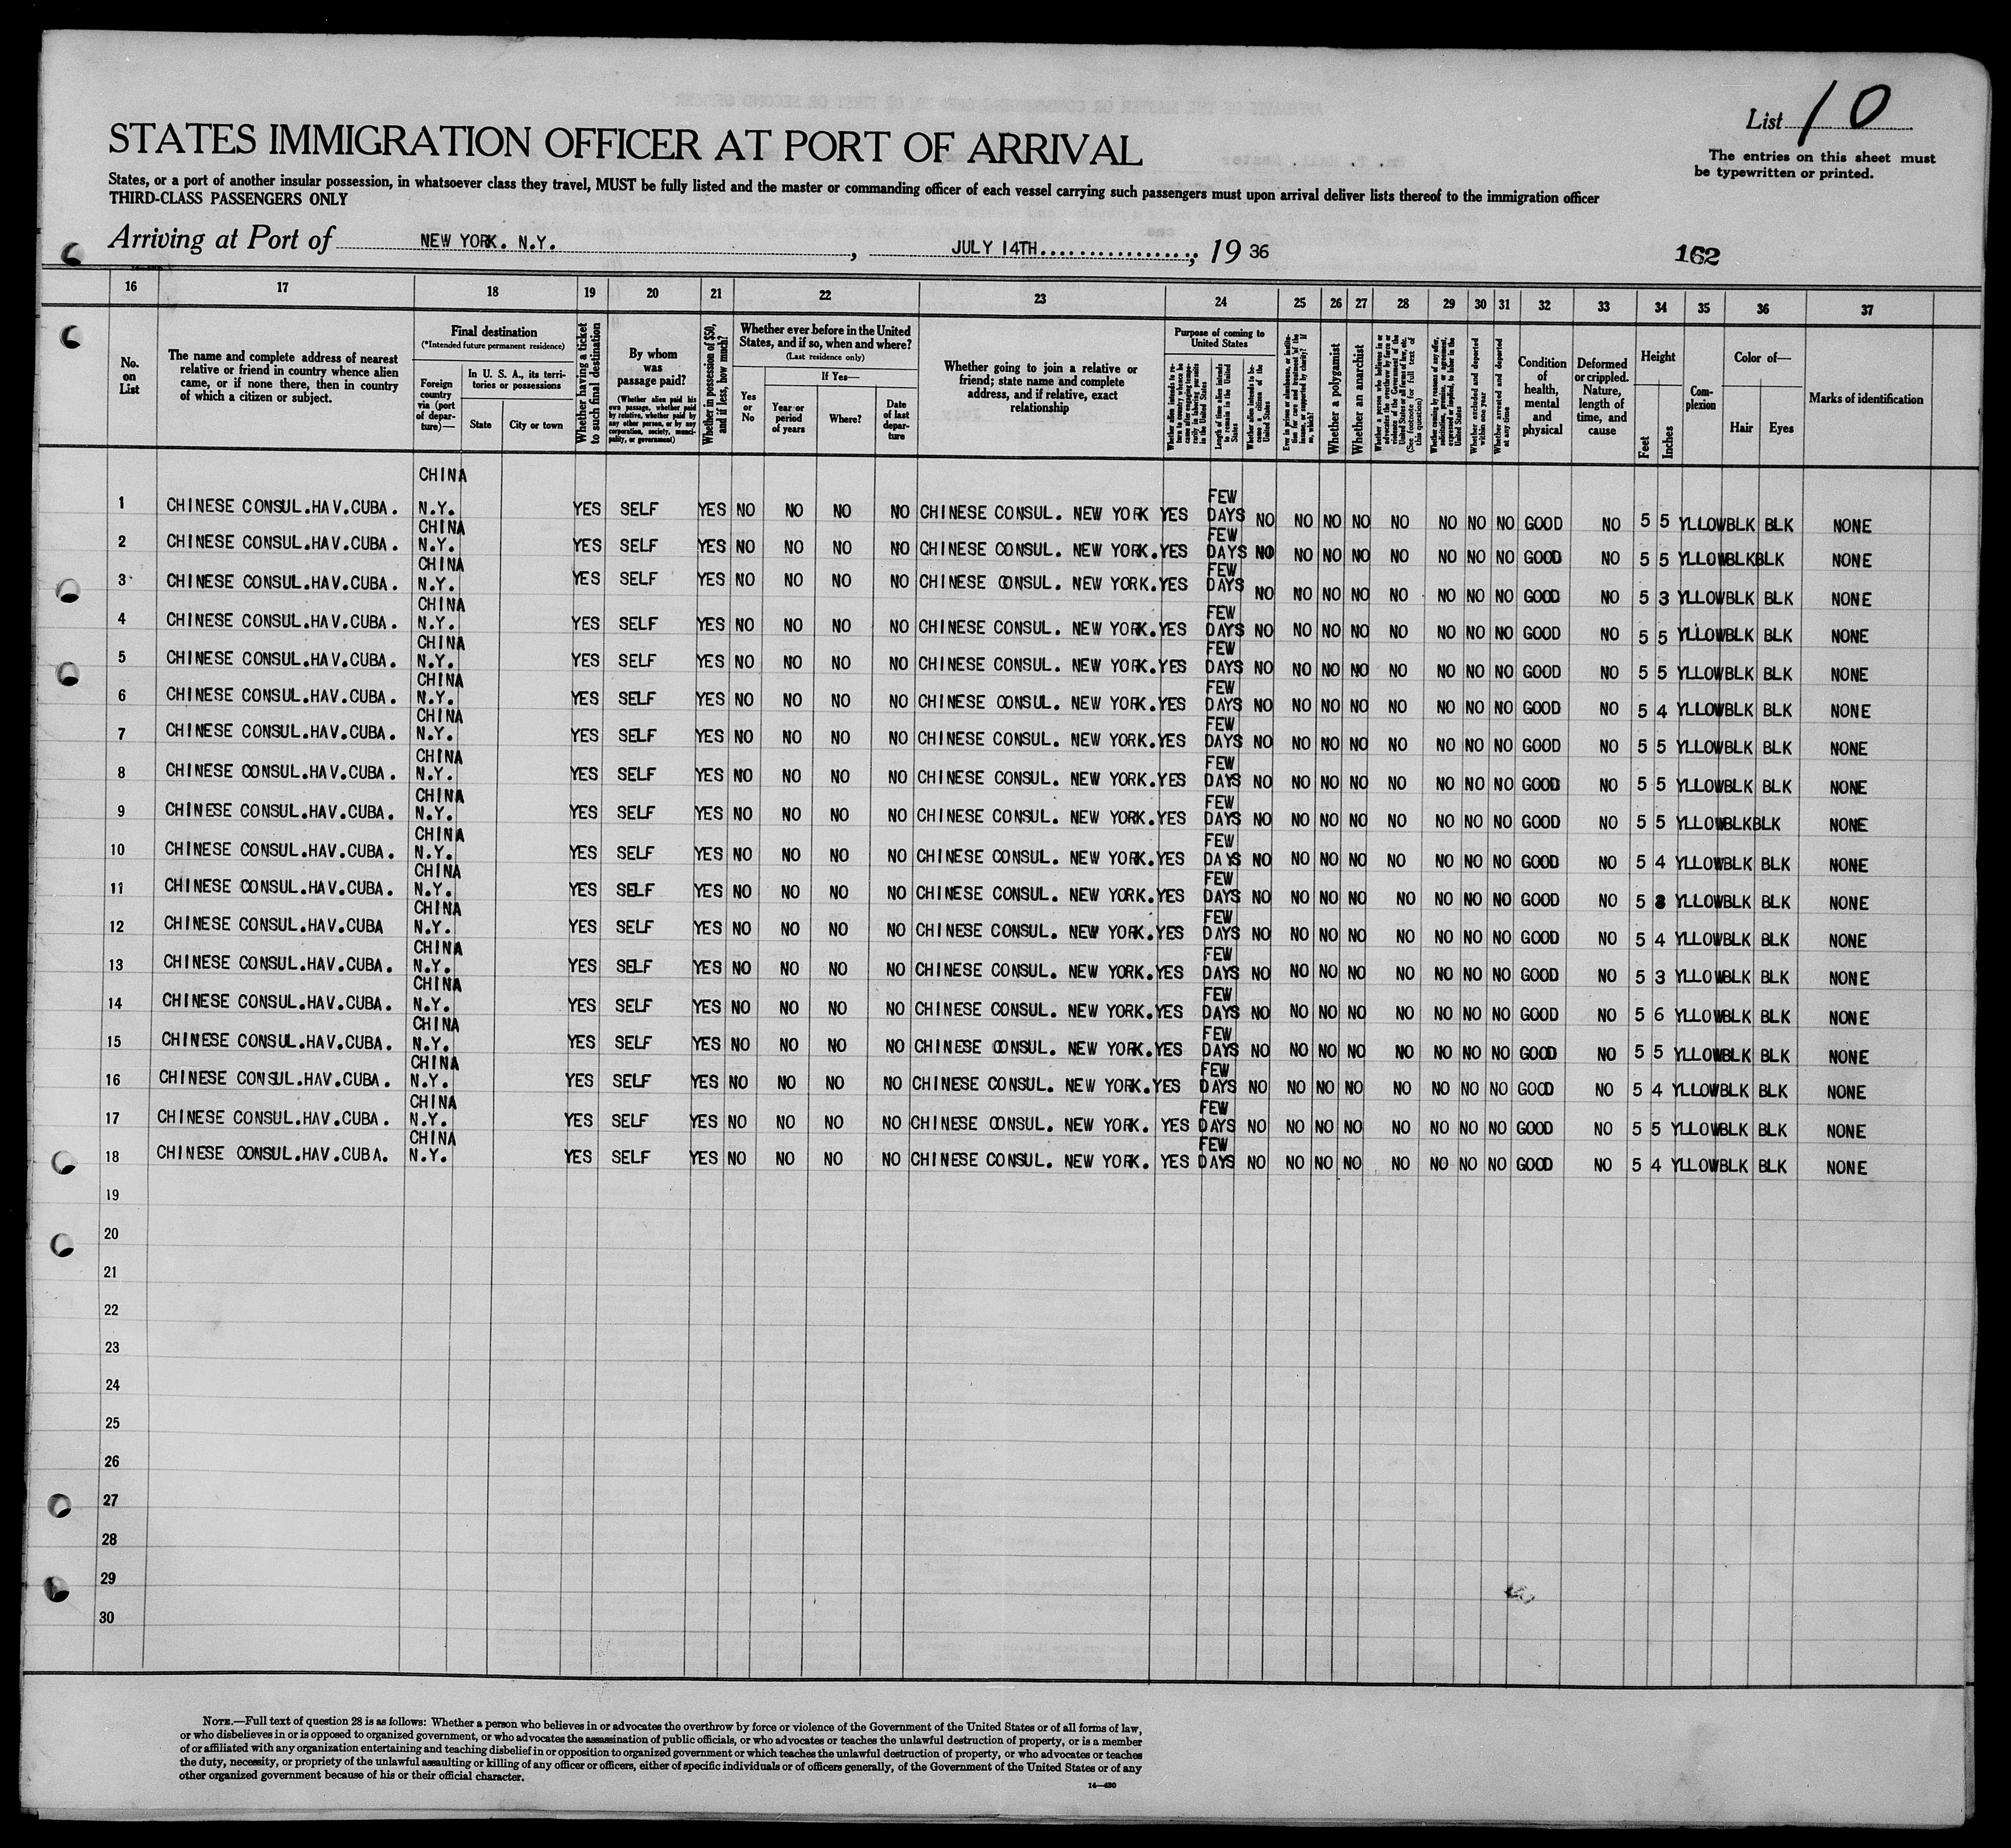 List 10
The entries on this sheet must
be typewritten or printed.
STATES IMMIGRATION OFFICER AT PORT OF ARRIVAL
States, or a port of another insular possession, in whatsoever class they travel, MUST be fully listed and the master or commanding officer of each vessel carrying such passengers must upon arrival deliver lists thereof to the immigration officer
THIRD-CLASS PASSENGERS ONLY
Arriving at Port of NEW YORK. N.Y. , JULY 14TH................, 19 36
162
16 17 18 19 20 21 22 23 24 25 26 27 28 29 30 31 32 33 34 35 36 37
No. on List
The name and complete address of nearest relative or friend in country whence alien came, or if none there, then in country of which a citizen or subject.
Final destination
(*Intended future permanent residence)
Foreign country via (port of departure)—
In U. S. A., its territories or possessions
State
City or town
Whether having a ticket to such final destination
By whom was passage paid?
(Whether alien paid his own passage, whether paid by relative, whether paid by any other person, or by any corporation, society, municipality, or government)
Whether in possession of $50, and if less, how much?
Whether ever before in the United States, and if so, when and where?
(Last residence only)
Yes or No
If Yes—
Year or period of years
Where?
Date of last departure
Whether going to join a relative or friend; state name and complete address, and if relative, exact relationship
Purpose of coming to United States
Whether alien intends to return to country whence he came after engaging temporarily in laboring pursuits in the United States
Length of time alien intends to remain in the United States
Whether alien intends to become a citizen of the United States
Ever in prison or almshouse, or institution for care and treatment of the insane, or supported by charity? If so, which?
Whether a polygamist
Whether an anarchist
Whether a person who believes in or advocates the overthrow by force or violence of the Government of the United States or all forms of law, etc. (See footnote for full text of this question)
Whether coming by reasons of any offer, solicitation, promise, or agreement, expressed or implied, to labor in the United States
Whether excluded and deported within one year
Whether arrested and deported at any time
Condition of health, mental and physical
Deformed or crippled. Nature, length of time, and cause
Height
Feet
Inches
Complexion
Color of—
Hair
Eyes
Marks of identification
1 CHINESE CONSUL.HAV.CUBA. CHINA N.Y. YES SELF YES NO NO NO NO CHINESE CONSUL. NEW YORK YES FEW DAYS NO NO NO NO NO NO NO NO GOOD NO 5 5 YLLOW BLK BLK NONE
2 CHINESE CONSUL.HAV.CUBA. CHINA N.Y. YES SELF YES NO NO NO NO CHINESE CONSUL. NEW YORK. YES FEW DAYS NO NO NO NO NO NO NO NO GOOD NO 5 5 YLLOW BLK BLK NONE
3 CHINESE CONSUL.HAV.CUBA. CHINA N.Y. YES SELF YES NO NO NO NO CHINESE CONSUL. NEW YORK. YES FEW DAYS NO NO NO NO NO NO NO NO GOOD NO 5 3 YLLOW BLK BLK NONE
4 CHINESE CONSUL.HAV.CUBA. CHINA N.Y. YES SELF YES NO NO NO NO CHINESE CONSUL. NEW YORK. YES FEW DAYS NO NO NO NO NO NO NO NO GOOD NO 5 5 YLLOW BLK BLK NONE
5 CHINESE CONSUL.HAV.CUBA. CHINA N.Y. YES SELF YES NO NO NO NO CHINESE CONSUL. NEW YORK. YES FEW DAYS NO NO NO NO NO NO NO NO GOOD NO 5 5 YLLOW BLK BLK NONE
6 CHINESE CONSUL.HAV.CUBA. CHINA N.Y. YES SELF YES NO NO NO NO CHINESE CONSUL. NEW YORK. YES FEW DAYS NO NO NO NO NO NO NO NO GOOD NO 5 4 YLLOW BLK BLK NONE
7 CHINESE CONSUL.HAV.CUBA. CHINA N.Y. YES SELF YES NO NO NO NO CHINESE CONSUL. NEW YORK. YES FEW DAYS NO NO NO NO NO NO NO NO GOOD NO 5 5 YLLOW BLK BLK NONE
8 CHINESE CONSUL.HAV.CUBA. CHINA N.Y. YES SELF YES NO NO NO NO CHINESE CONSUL. NEW YORK. YES FEW DAYS NO NO NO NO NO NO NO NO GOOD NO 5 5 YLLOW BLK BLK NONE
9 CHINESE CONSUL.HAV.CUBA. CHINA N.Y. YES SELF YES NO NO NO NO CHINESE CONSUL. NEW YORK. YES FEW DAYS NO NO NO NO NO NO NO NO GOOD NO 5 5 YLLOW BLK BLK NONE
10 CHINESE CONSUL.HAV.CUBA. CHINA N.Y. YES SELF YES NO NO NO NO CHINESE CONSUL. NEW YORK. YES FEW DAYS NO NO NO NO NO NO NO NO GOOD NO 5 4 YLLOW BLK BLK NONE
11 CHINESE CONSUL.HAV.CUBA. CHINA N.Y. YES SELF YES NO NO NO NO CHINESE CONSUL. NEW YORK. YES FEW DAYS NO NO NO NO NO NO NO NO GOOD NO 5 YLLOW BLK BLK NONE
12 CHINESE CONSUL.HAV.CUBA CHINA N.Y. YES SELF YES NO NO NO NO CHINESE CONSUL. NEW YORK. YES FEW DAYS NO NO NO NO NO NO NO NO GOOD NO 5 4 YLLOW BLK BLK NONE
13 CHINESE CONSUL.HAV.CUBA. CHINA N.Y. YES SELF YES NO NO NO NO CHINESE CONSUL. NEW YORK. YES FEW DAYS NO NO NO NO NO NO NO NO GOOD NO 5 3 YLLOW BLK BLK NONE
14 CHINESE CONSUL.HAV.CUBA. CHINA N.Y. YES SELF YES NO NO NO NO CHINESE CONSUL. NEW YORK. YES FEW DAYS NO NO NO NO NO NO NO NO GOOD NO 5 6 YLLOW BLK BLK NONE
15 CHINESE CONSUL.HAV.CUBA. CHINA N.Y. YES SELF YES NO NO NO NO CHINESE CONSUL. NEW YORK. YES FEW DAYS NO NO NO NO NO NO NO NO GOOD NO 5 5 YLLOW BLK BLK NONE
16 CHINESE CONSUL.HAV.CUBA. CHINA N.Y. YES SELF YES NO NO NO NO CHINESE CONSUL. NEW YORK. YES FEW DAYS NO NO NO NO NO NO NO NO GOOD NO 5 4 YLLOW BLK BLK NONE
17 CHINESE CONSUL.HAV.CUBA. CHINA N.Y. YES SELF YES NO NO NO NO CHINESE CONSUL. NEW YORK. YES FEW DAYS NO NO NO NO NO NO NO NO GOOD NO 5 5 YLLOW BLK BLK NONE
18 CHINESE CONSUL.HAV.CUBA. CHINA N.Y. YES SELF YES NO NO NO NO CHINESE CONSUL. NEW YORK. YES FEW DAYS NO NO NO NO NO NO NO NO GOOD NO 5 4 YLLOW BLK BLK NONE
19
20
21
22
23
24
25
26
27
28
29
30
NOTE.—Full text of question 28 is as follows: Whether a person who believes in or advocates the overthrow by force or violence of the Government of the United States or of all forms of law,
or who disbelieves in or is opposed to organized government, or who advocates the assassination of public officials, or who advocates or teaches the unlawful destruction of property, or is a member
of or affiliated with any organization entertaining and teaching disbelief in or opposition to organized government or which teaches the unlawful destruction of property, or who advocates or teaches
the duty, necessity, or propriety of the unlawful assaulting or killing of any officer or officers, either of specific individuals or of officers generally, of the Government of the United States or of any
other organized government because of his or their official character.
14—430